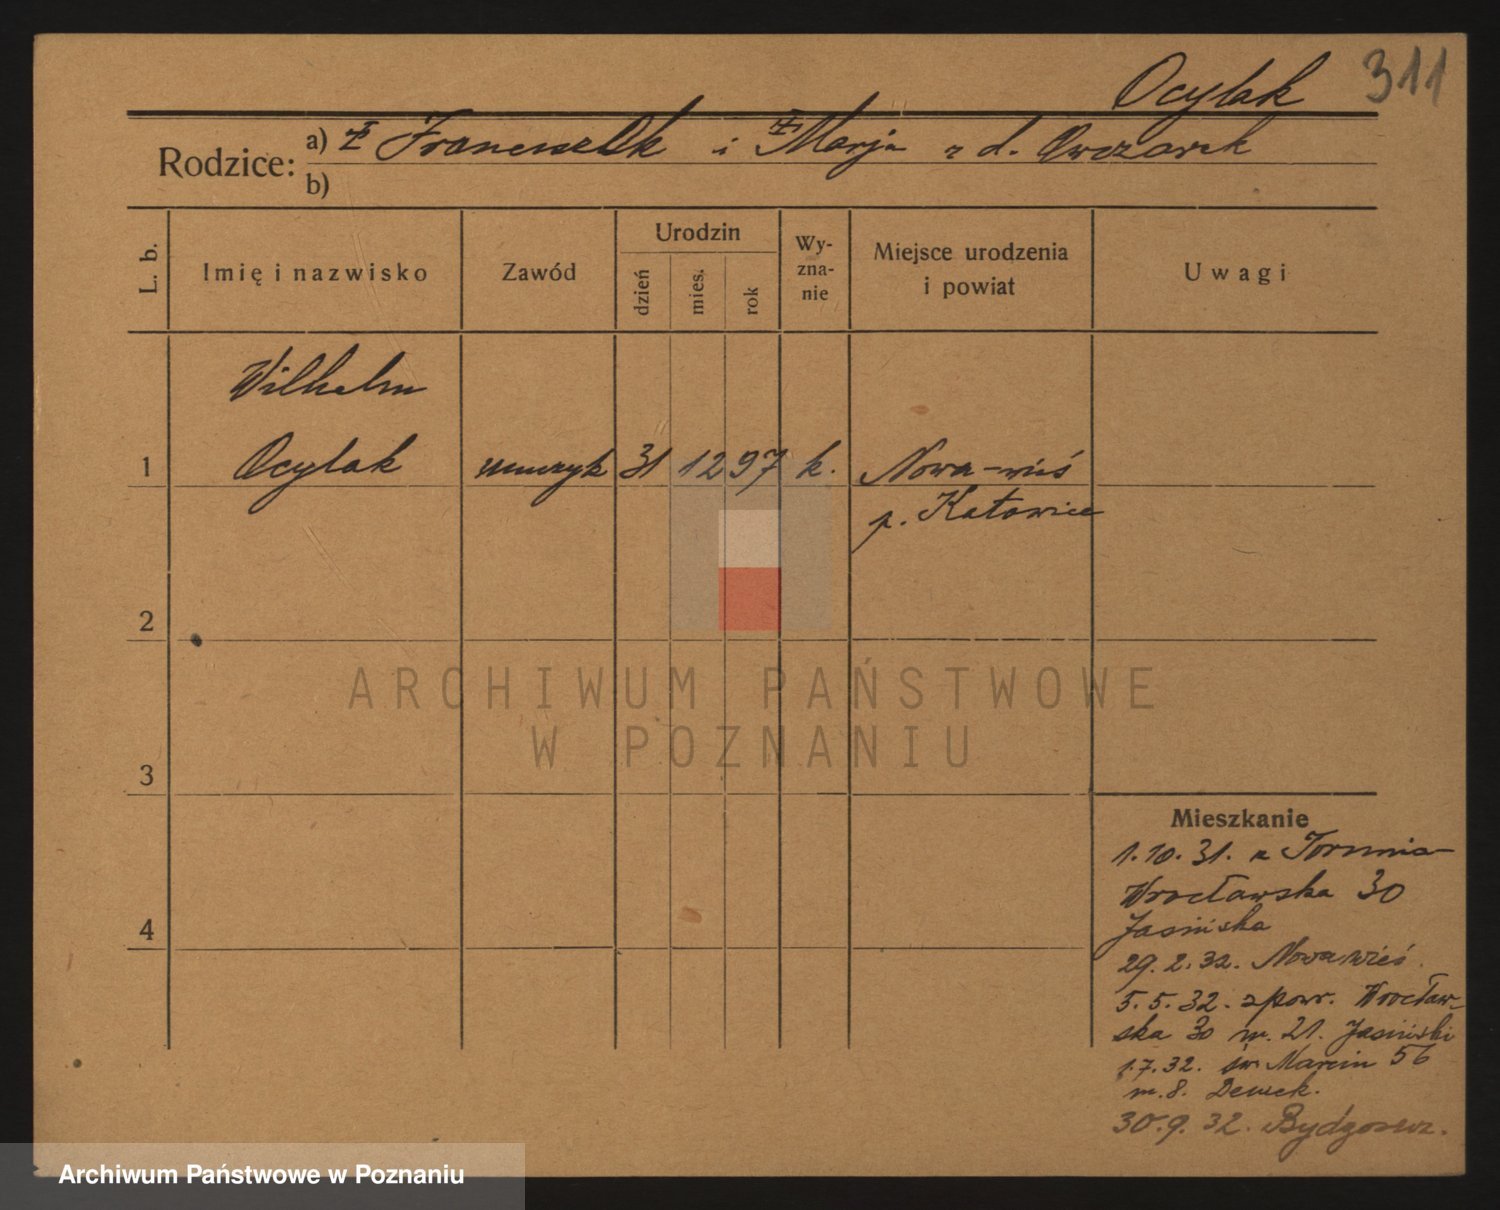 Ocylak 311
Rodzice: a) ‡ Franciszek i ‡ Marja z d. Owczarek
b)
L. b.
Imię i nazwisko
Zawód
Urodzin
dzień
mies.
rok
Wy-
zna-
nie
Miejsce urodzenia
i powiat
Uwagi
Wilhelm
1 Ocylak muzyk 31 12 97 k. Nowa-wieś
p. Katowice
2
3
4
ARCHIWUM PAŃSTWOWE
W POZNANIU
Mieszkanie
1.10.31. z Torunia
Wrocławska 30
Jasińska
29.2.32. Nowawieś.
5.5.32. z powr. Wrocław-
ska 30 m. 21. Jasiński
1.7.32. św. Marcin 56
m. 8.
30.9.32. Bydgoszcz.
Archiwum Państwowe w Poznaniu